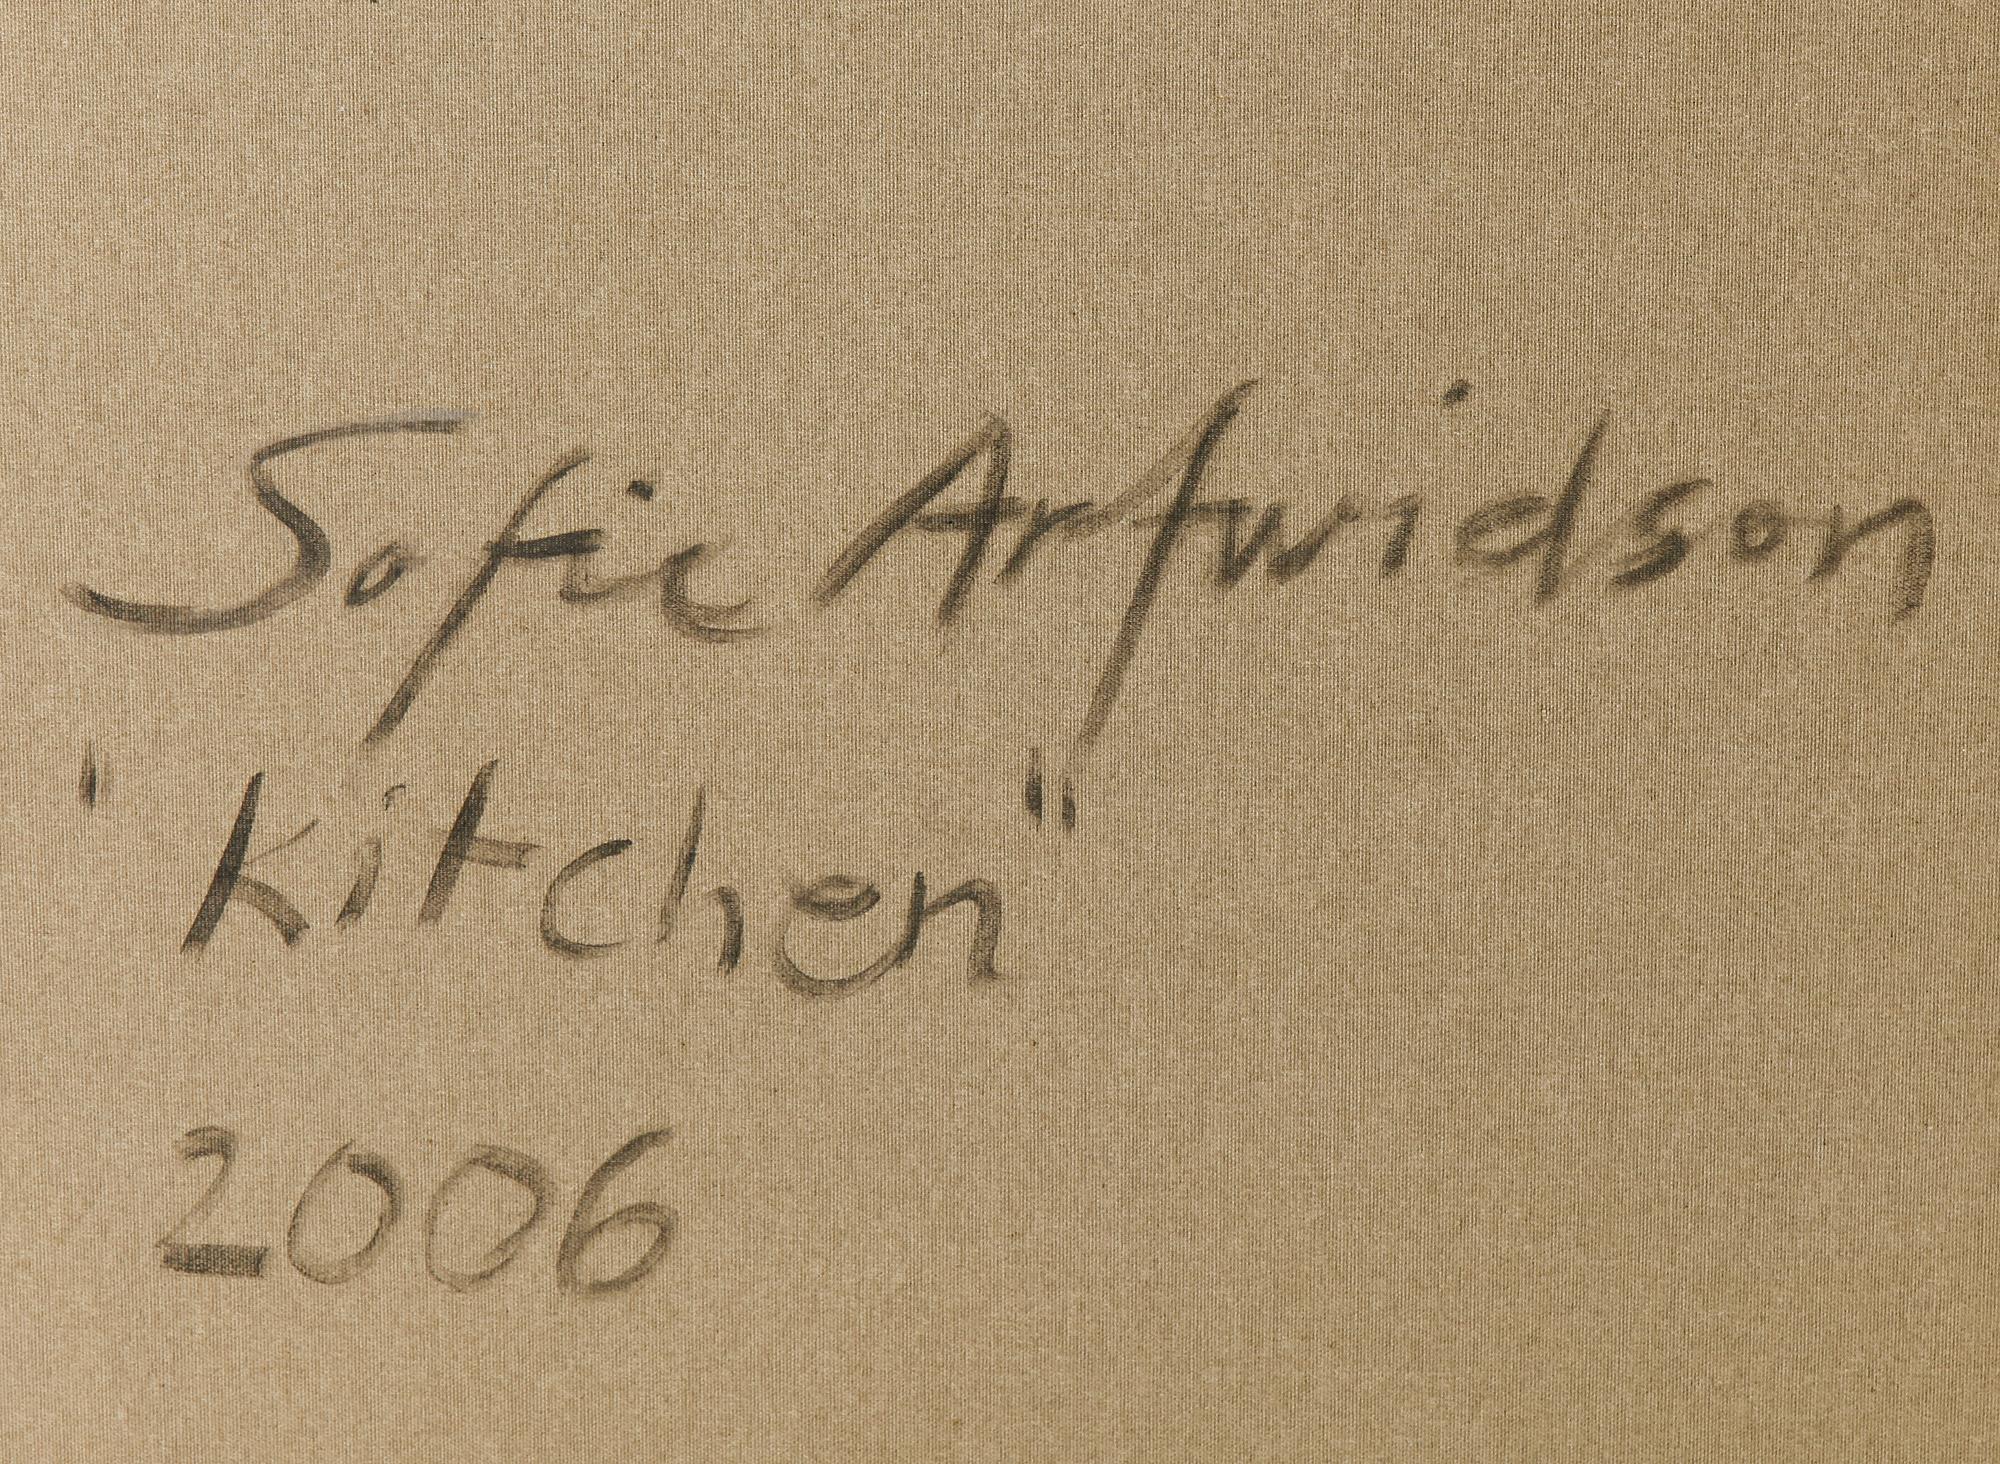 Sofie Arfwidson
"Kitchen"
2006